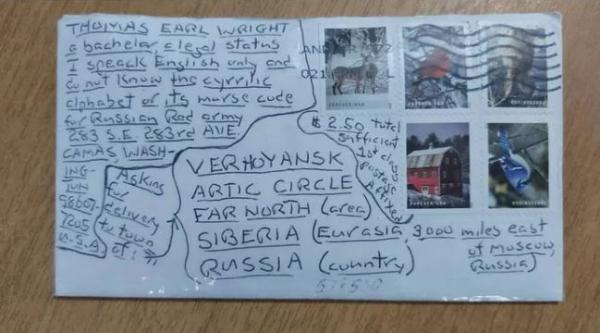 THOMAS EARL WRIGHT
a bachelor, a legal status
I speack English only and
do not know the cyrrilic
alphabet or its morse code
for Russian Red army
283 S.E. 283rd AVE.
CAMAS WASH-
ING-
TON
98607-
7205
U.S.A
Asking
for
delivery
to town
of:
$2.50 total
sufficient
1st class
postage
Affixed
VERHOYANSK
ARTIC CIRCLE
FAR NORTH (area)
SIBERIA (Eurasia, 3,000 miles east
of Moscow,
Russia)
RUSSIA (country)
FOREVER/USA
FOREVER/USA
FOREVER/USA
FOREVER/USA